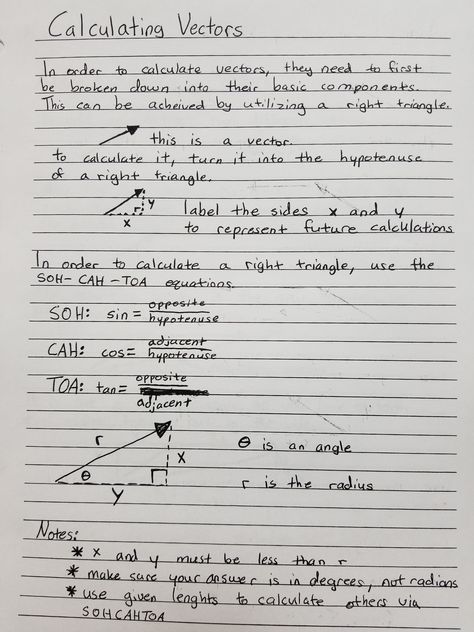 Calculating Vectors
In order to calculate vectors, they need to first
be broken down into their basic components.
This can be acheived by utilizing a right triangle.
this is a vector.
to calculate it, turn it into the hypotenuse
of a right triangle.
y
x
label the sides x and y
to represent future calculations
In order to calculate a right triangle, use the
SOH-CAH-TOA equations.
SOH: sin = opposite/hypotenuse
CAH: cos= adjacent/hypotenuse
TOA: tan= opposite/adjacent
r
θ
x
y
θ is an angle
r is the radius
Notes:
* x and y must be less than r
* make sure your answer is in degrees, not radians
* use given lenghts to calculate others via
SOHCAHTOA